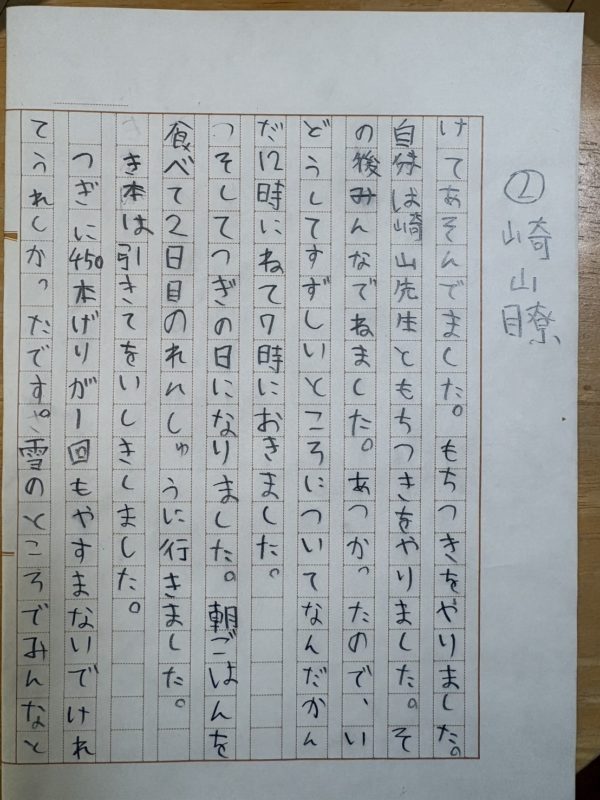 ② 崎山瞭
けてあそんでました。もちつきをやりました。
自分は崎山先生ともちつきをやりました。そ
の後みんなでねました。あつかったので、い
どうしてすずしいところについてなんだかん
だ12時にねて7時におきました。
つそしてつぎの日になりました。朝ごはんを
食べて2日目のれんしゅうに行きました。
き本は引きてをいしきしました。
つぎに450本げりが1回もやすまないでけれ
てうれしかったです。雪のところでみんなと